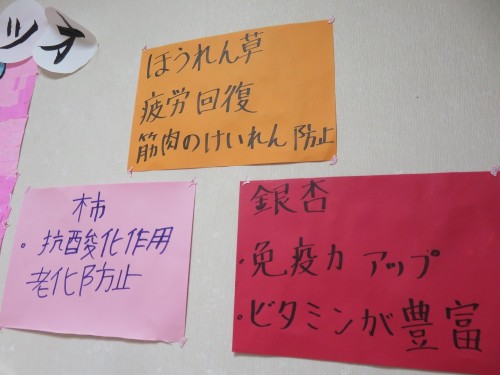 ツオ
ほうれん草
疲労回復
筋肉のけいれん防止
柿
・抗酸化作用
老化防止
銀杏
・免疫力アップ
・ビタミンが豊富